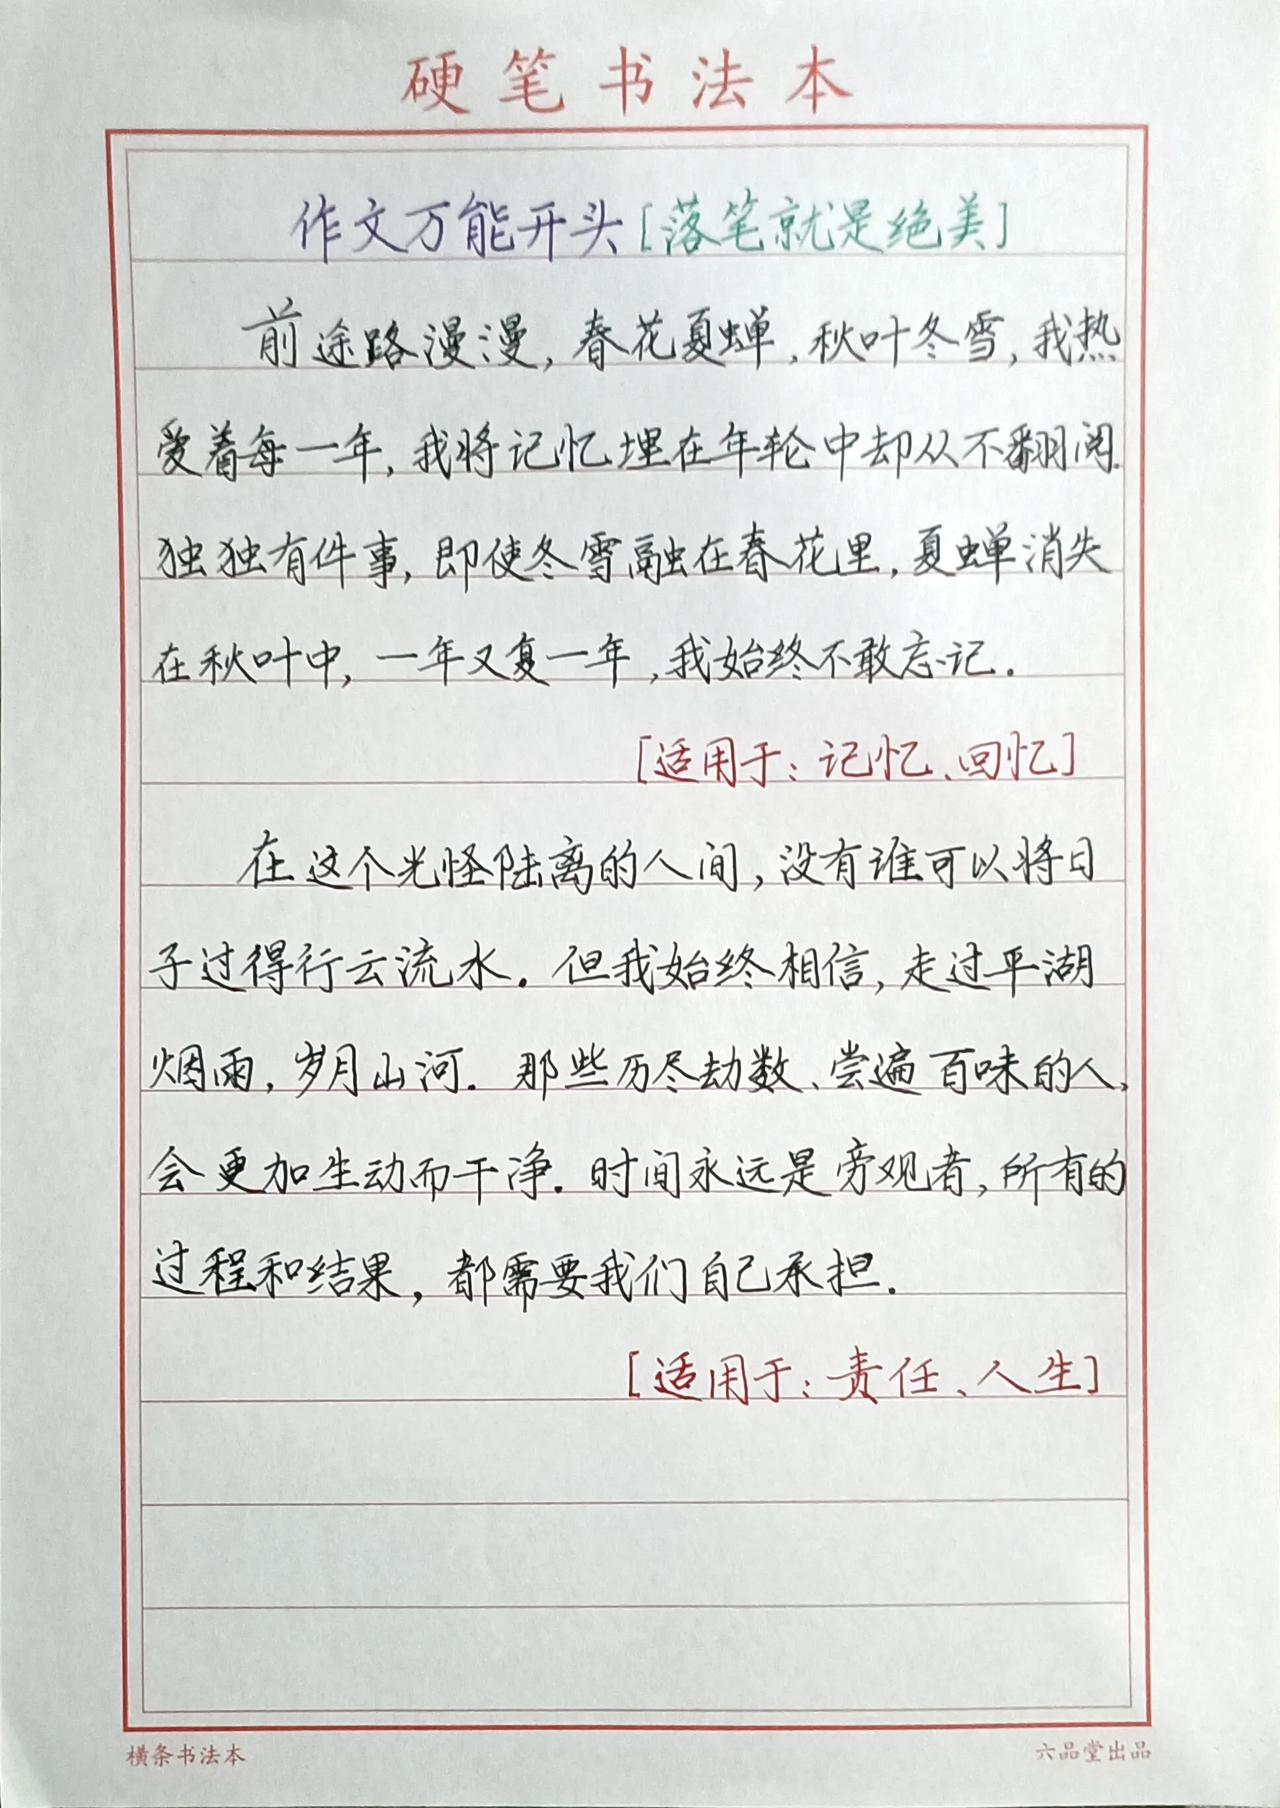 硬笔书法本
作文万能开头[落笔就是绝美]
前途路漫漫,春花夏蝉,秋叶冬雪,我热
爱着每一年,我将记忆埋在年轮中却从不翻阅.
独独有件事,即使冬雪融在春花里,夏蝉消失
在秋叶中,一年又复一年,我始终不敢忘记.
[适用于:记忆、回忆]
在这个光怪陆离的人间,没有谁可以将日
子过得行云流水.但我始终相信,走过平湖
烟雨,岁月山河.那些历尽劫数、尝遍百味的人,
会更加生动而干净.时间永远是旁观者,所有的
过程和结果,都需要我们自己承担.
[适用于:责任、人生]
横条书法本 六品堂出品